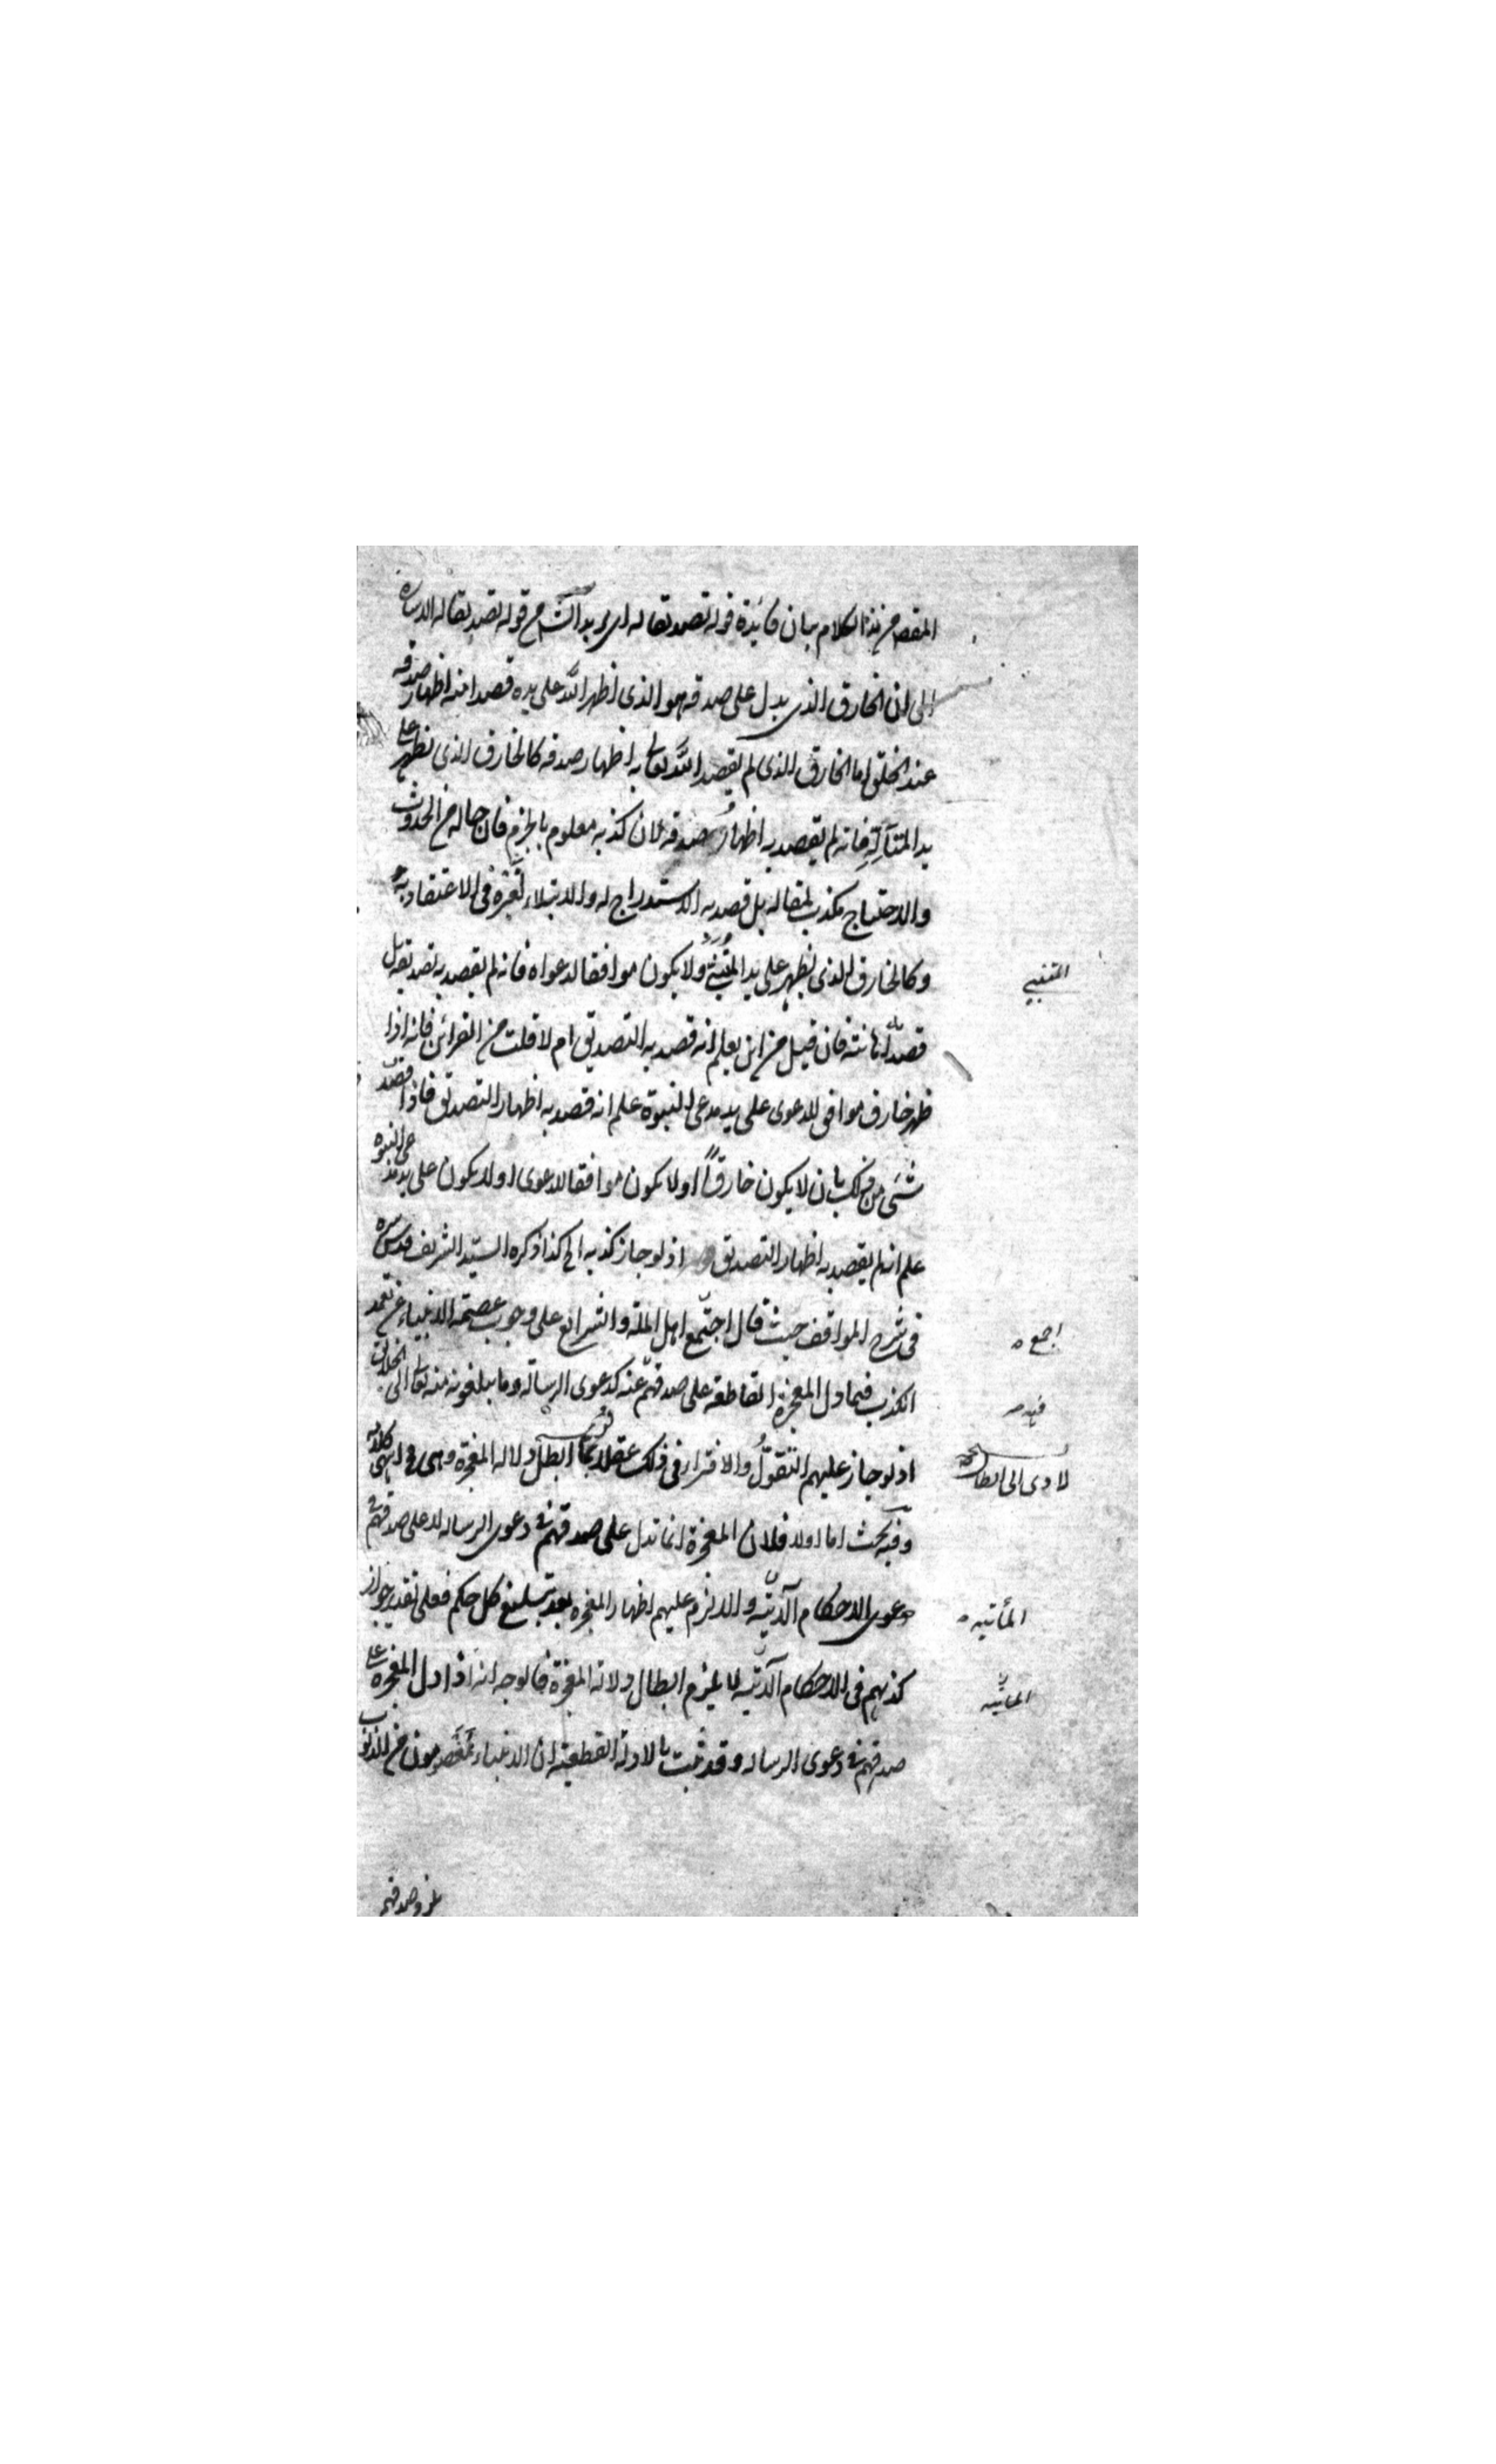 المقصود من هذا الكلام بيان فائدة قوله تصديقا له اى يريد الش من قوله تصديقا له الاشارة
الى ان الخارق الذى يدل على صدقه هو الذى اظهر الله على يده قصدا منه اظهار صدقه
عند الخلق اما الخارق الذى لم يقصد الله تعالى به اظهار صدقه كالخارق الذى يظهر على
يد المتأله فانه لم يقصد به اظهار صدقه لان كذبه معلوم بالجزم فان حاله من الحدوث
والاحتياج مكذب لمقاله بل قصد به الاستدراج له والابتلاء لغيره فى الاعتقاد به
وكالخارق الذى يظهر على يد المتنبئ ولا يكون موافقا لدعواه فانه لم يقصد به تصديقه بل
المتنبى
قصد اهانته فان قيل من اين يعلم انه قصد به التصديق ام لا قلت من القرائن فانه اذا
ظهر خارق موافق للدعوى على يد مدعى النبوة علم انه قصد به اظهار التصديق فاذا فقد
شئ من ذلك بان لا يكون خارقا او لا يكون موافقا للدعوى او لا يكون على يد مدعى النبوة
علم انه لم يقصد به اظهار التصديق اذ لو جاز كذبه الخ كذا ذكره السيد الشريف قدس سره
فى شرح المواقف حيث قال اجتمع اهل الملة والشرايع على وجوب عصمة الانبياء عن تعمد
اجمع
الكذب فيما دل المعجزة القاطعة على صدقهم عنه كدعوى الرسالة وما يبلغونه منه تعالى الى الخلائق
فيه
اذ لو جاز عليهم التقول والافتراء فى ذلك عقلا لابطل دلالة المعجزة وهى مح انتهى كلامه
لادى الى ابطال
وفيه بحث اما اولا فلان المعجزة انما تدل على صدقهم فى دعوى الرسالة لا على صدقهم فى
دعوى الاحكام الآتية والا لزم عليهم اظهار المعجزة بعد تبليغ كل حكم فعلى تقدير جواز
المأتية
كذبهم فى الاحكام الآتية لا يلزم ابطال دلالة المعجزة فالوجه انه اذا دل المعجزة على
المأتية
صدقهم فى دعوى الرسالة وقد ثبت بالادلة القطعية ان الانبياء معصومون من الذنوب
وصدقهم